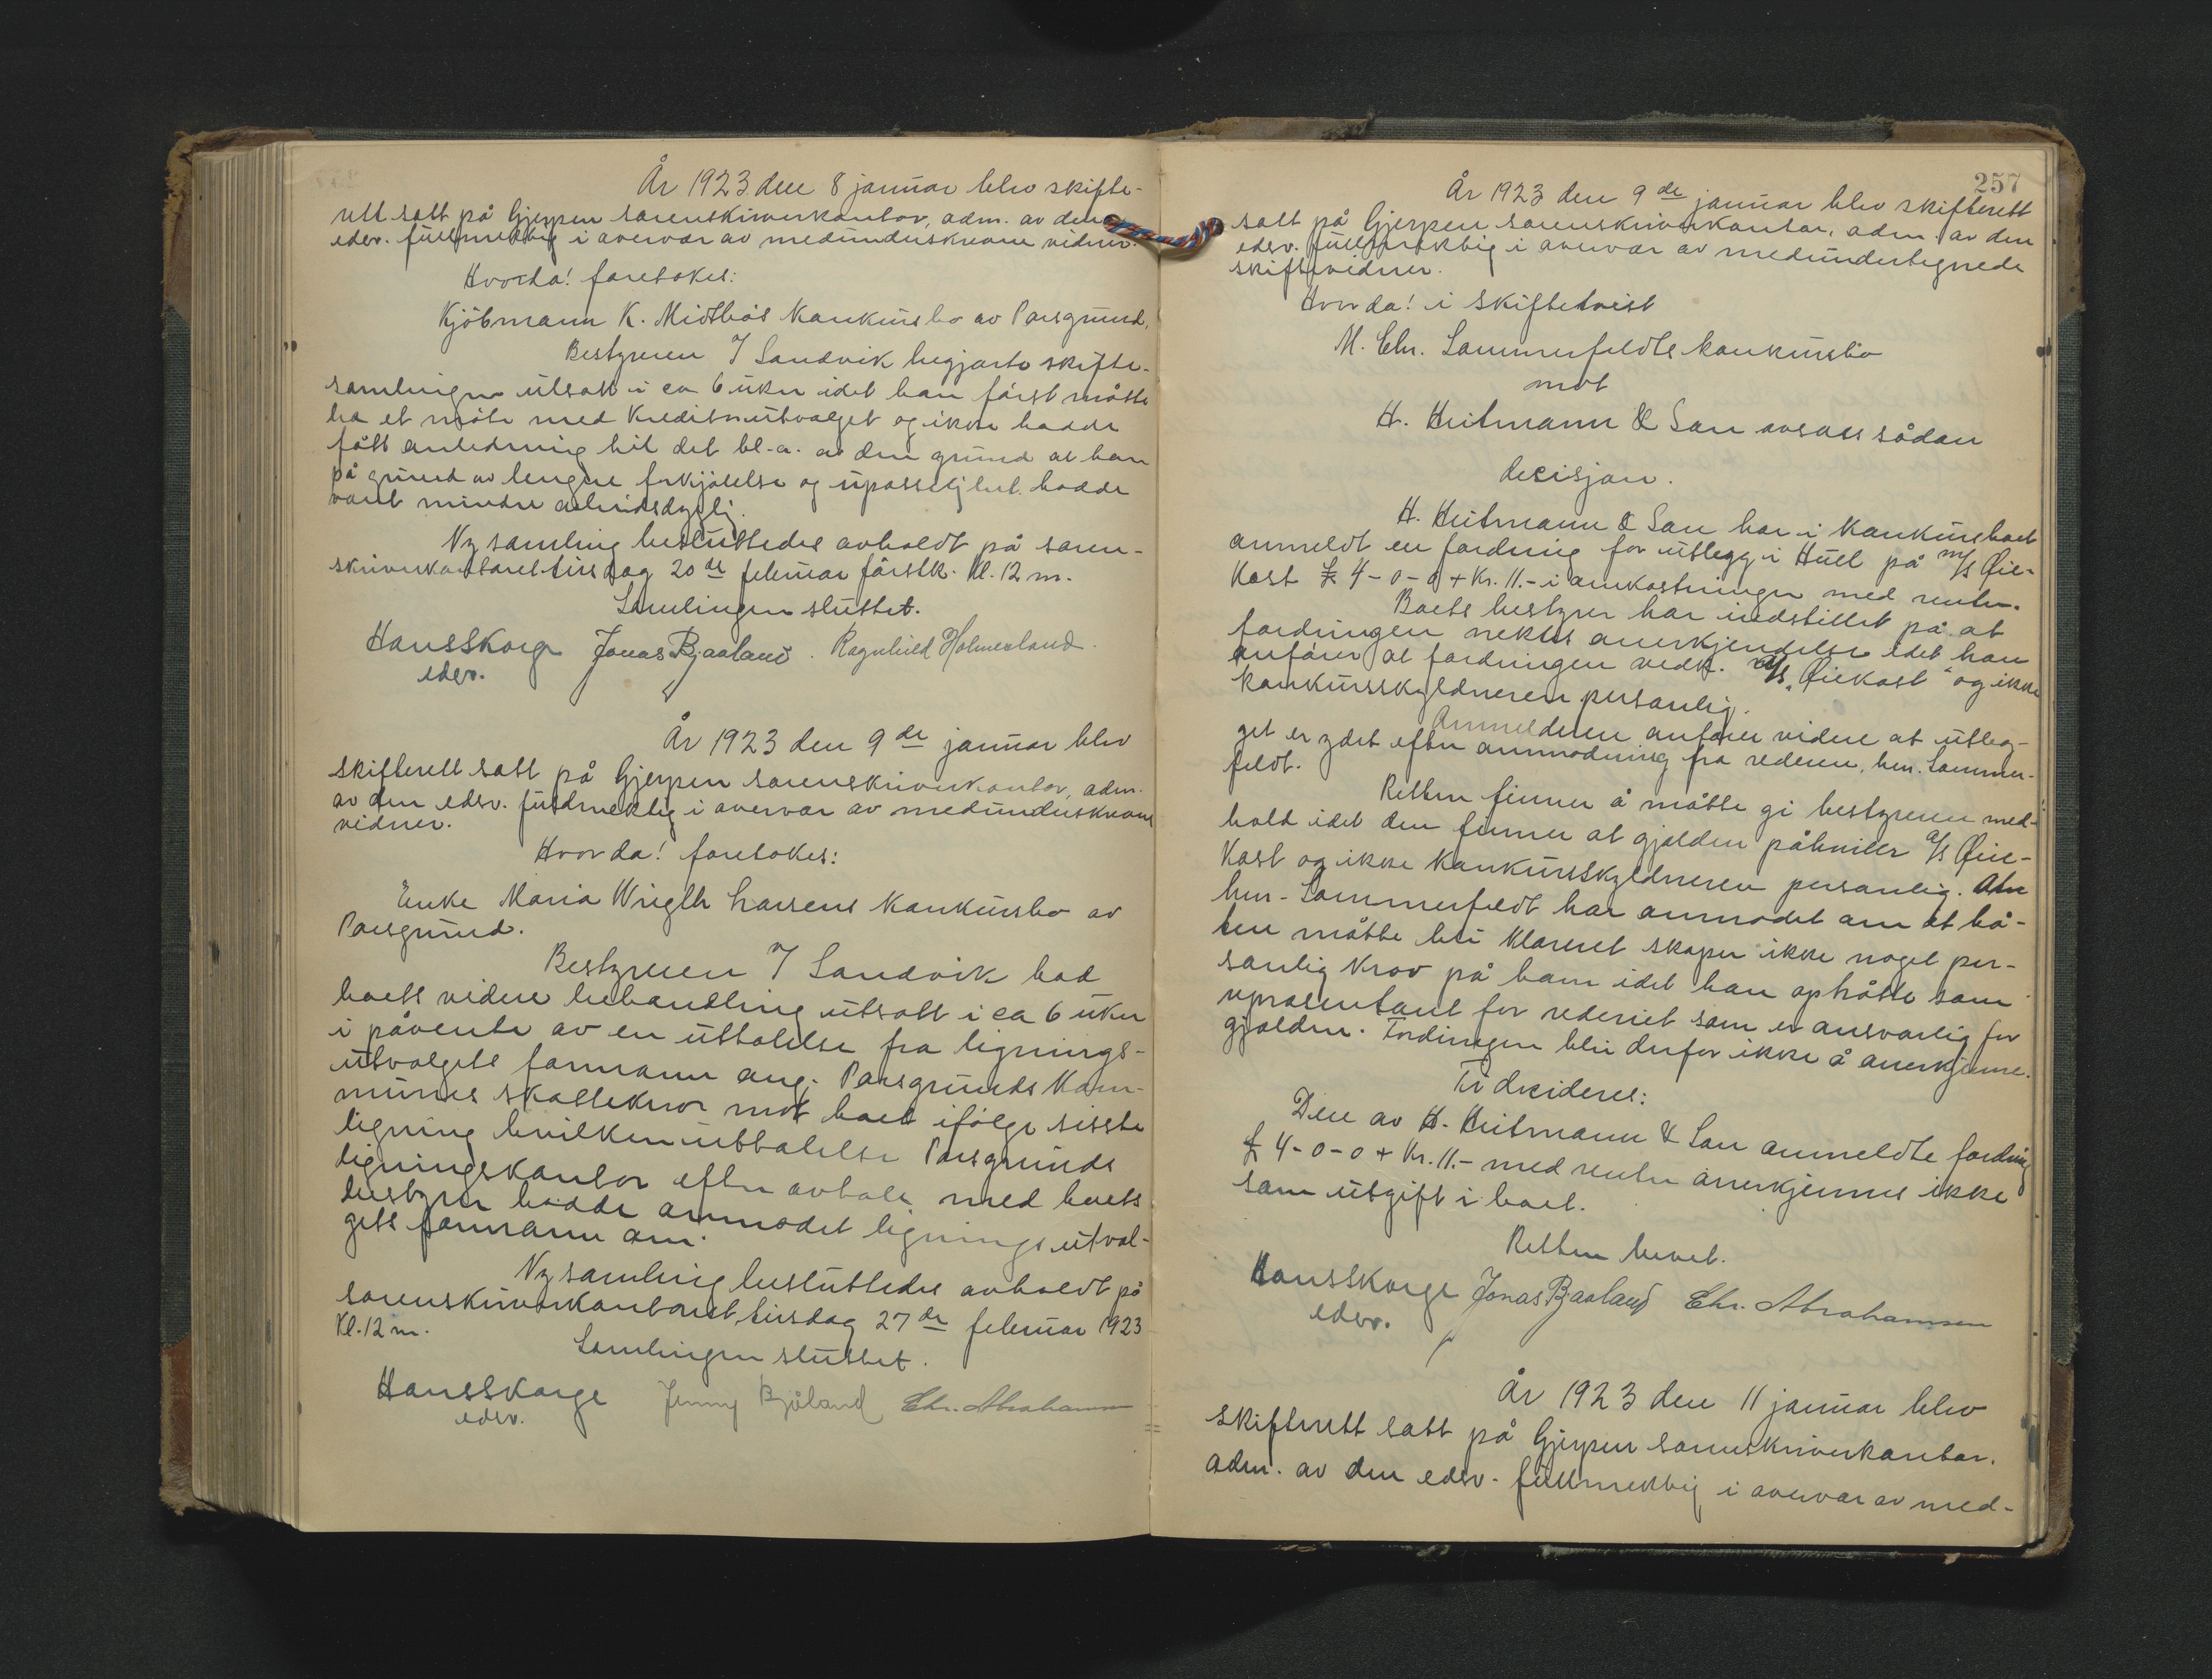 År 1923 den 8 januar blev skifte-
rett satt på Gjerpen sorenskriverkontor, adm. av den
edsv. fullmektig i overvær av medunderskrevne vidner.
Hvorda! foretokes:
Kjöbmann K. Midtbøs Konkursbo av Porsgrund.
Bestyreren J Sandvik begjærte skifte-
samlingen utsatt i ca 6 uker idet han först måtte
ha et möte med Kreditorutvalget og ikke hadde
fått anledning til det bl.a. av den grund at han
på grund av lengere forkjölelse og upasselighet hadde
vært mindre arbeidsdygtig.
Ny samling besluttedes avholdt på soren-
skriverkontoret tirsdag 20de februar förstk. Kl. 12 m.
Samlingen sluttet.
Hans Skorge Jonas Bjaaland. Ragnhild Holmenland.
edsv.
År 1923 den 9de januar blev
skifterett satt på Gjerpen sorenskriverkontor, adm.
av den edsv. fuldmektig i overvær av medunderskrevne
vidner.
Hvor da! foretokes:
Enke Maria Wrigth Larsens Konkursbo av
Porsgrund.
Bestyreren J Sandvik bad
boets videre behandling utsatt i ca 6 uker
i påvente av en uttalelse fra lignings-
utvalgets formann ang. Porsgrunds Kom-
munes skattekrav mot boet ifölge sisste
ligning hvilken uttalelse Porsgrunds
ligningskontor efter avtale med boets
bestyrer hadde anmodet ligningsutval-
gets formann om.
Ny samling besluttedes avholdt på
sorenskriverkontoret, tirsdag 27de februar 1923
Kl. 12 m.
Samlingen sluttet.
Hans Skorge Jenny Bjåland Chr. Abrahamsen
edsv.
257
År 1923 den 9de januar blev skifterett
satt på Gjerpen sorenskriverkontor, adm. av den
edsv. fullmektig i overvær av medundertegnede
skiftevidner.
Hvor da! i skiftetvist
M. Chr. Sommerfeldts konkursbo
mot
H. Heitmann & Sön avsaes sådan
decisjon.
H. Heitmann & Sön har i konkursboet
anmeldt en fordring for utlegg i Hull på M/S Øie-
Kast £ 4-0-0 + Kr. 11.- i omkostninger med renter.
Boets bestyrer har indstillet på at
fordringen nektes anerkjendelse idet han
anfører at fordringen vedk. A/S "Øiekast" og ikke
konkursskyldneren personlig.
Anmelderen anförer videre at utleg-
get er ydet efter anmodning fra rederen, hrr. Sommer-
feldt.
Retten finner å måtte gi bestyreren med-
hold idet den finner at gjælden påhviler A/S Øie-
Kast og ikke Konkursskyldneren personlig. At
hrr. Sommerfeldt har anmodet om at bå-
ten måtte bli klareret skaper ikke noget per-
sonlig krav på ham idet han optrådte som
representant for rederiet som er ansvarlig for
gjælden. Fordringen blir derfor ikke å anerkjenne.
Ti decideres:
Den av H. Heitmann & Sön anmeldte fordring
£ 4-0-0 + Kr. 11.- med renter anerkjennes ikke
som utgift i boet.
Retten hevet.
Hans Skorge Jonas Bjaaland Chr. Abrahamsen
edsv.
År 1923 den 11 januar blev
skifterett satt på Gjerpen sorenskriverkontor.
adm. av den edsv. fullmektig i overvær av med-